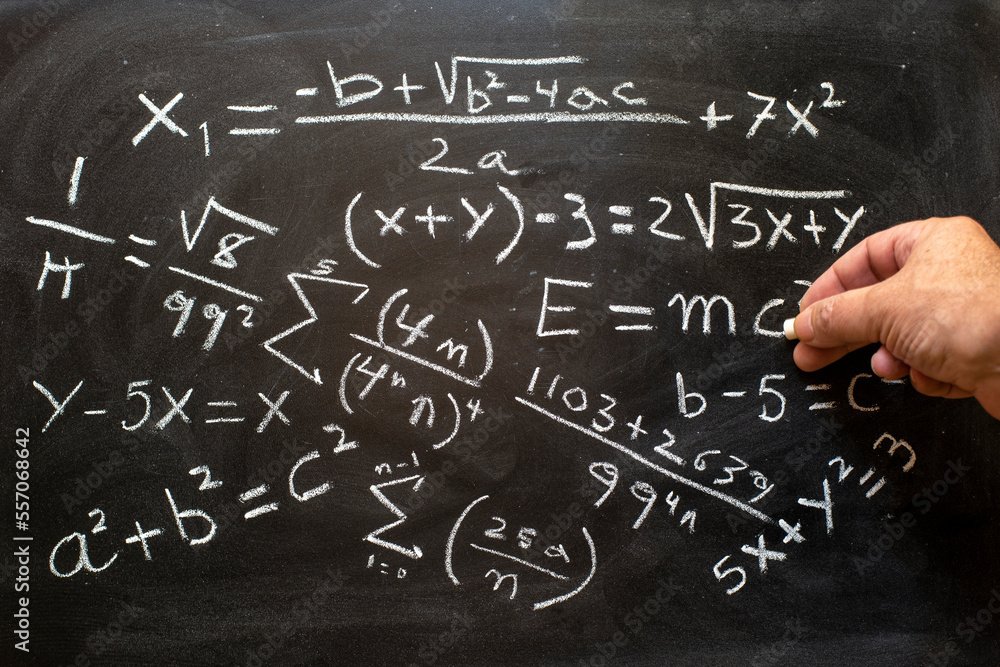 x₁ = (-b+√(b²-4ac))/(2a) + 7x²
1/H = √8/(99 9²)
(x+y)-3=2√(3x+y)
Σ 5 (4n)/(4ⁿ n)⁴
E = mc²
y-5x=x
1103+2639/(99⁴ⁿ)
b-5=c
a²+b²=c²
Σ n-1 i=0 (25a/n)
5x x y² = m
Adobe Stock | 557068642